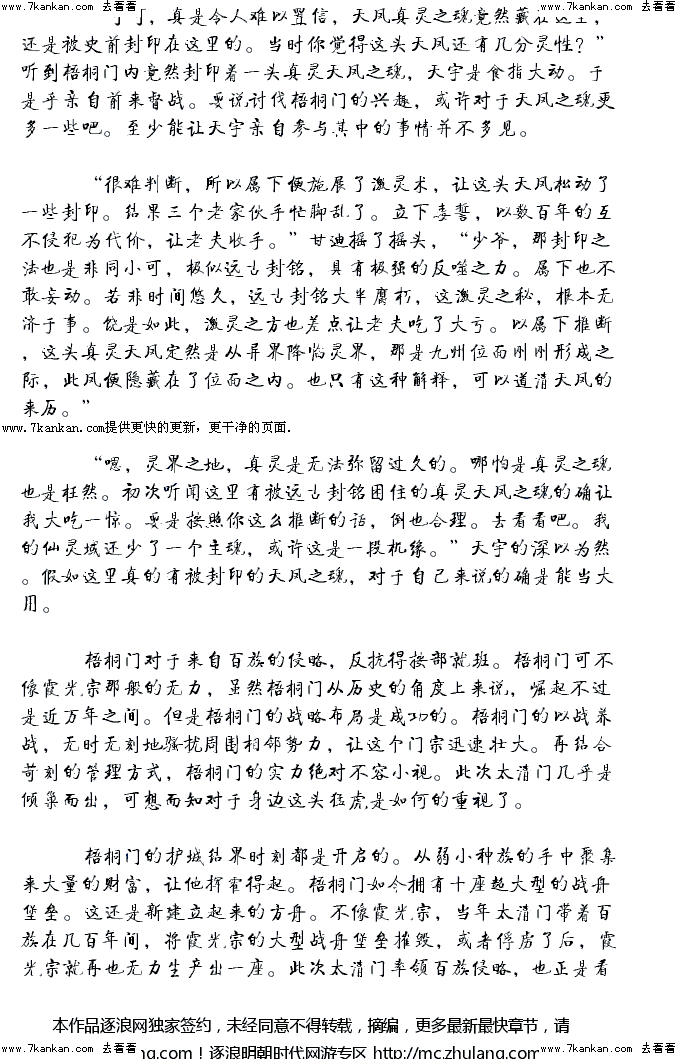 www.7kankan.com 去看看 www.7kankan.com 去看看 www.7kankan.com 去看看 www.7kankan.com 去看看
，真是令人难以置信，天凤真灵之魂竟然藏在这里，
还是被史前封印在这里的。当时你觉得这头天凤还有几分灵性？”
听到梧桐门内竟然封印着一头真灵天凤之魂，天宇是食指大动。于
是乎亲自前来督战。要说讨伐梧桐门的兴趣，或许对于天凤之魂更
多一些吧。至少能让天宇亲自参与其中的事情并不多见。
“很难判断，所以属下便施展了激灵术，让这头天凤松动了
一些封印。结果三个老家伙手忙脚乱了。立下毒誓，以数百年的互
不侵犯为代价，让老夫收手。”甘迪摇了摇头，“少爷，那封印之
法也是非同小可，极似远古封铭，具有极强的反噬之力。属下也不
敢妄动。若非时间悠久，远古封铭大半腐朽，这激灵之秘，根本无
济于事。饶是如此，激灵之方也差点让老夫吃了大亏。以属下推断
，这头真灵天凤定然是从异界降临灵界，那是九州位面刚刚形成之
际，此凤便隐藏在了位面之内。也只有这种解释，可以道清天凤的
来历。”
www.7kankan.com提供更快的更新，更干净的页面.
“嗯，灵界之地，真灵是无法弥留过久的。哪怕是真灵之魂
也是枉然。初次听闻这里有被远古封铭困住的真灵天凤之魂的确让
我大吃一惊。要是按照你这么推断的话，倒也合理。去看看吧。我
的仙灵域还少了一个主魂，或许这是一段机缘。”天宇的深以为然
。假如这里真的有被封印的天凤之魂，对于自己来说的确是能当大
用。
梧桐门对于来自百族的侵略，反抗得按部就班。梧桐门可不
像霞光宗那般的无力，虽然梧桐门从历史的角度上来说，崛起不过
是近万年之间。但是梧桐门的战略布局是成功的。梧桐门的以战养
战，无时无刻地骚扰周围相邻势力，让这个门宗迅速壮大。再结合
苛刻的管理方式，梧桐门的实力绝对不容小视。此次太清门几乎是
倾巢而出，可想而知对于身边这头猛虎是如何的重视了。
梧桐门的护城结界时刻都是开启的。从弱小种族的手中聚集
来大量的财富，让他挥霍得起。梧桐门如今拥有十座超大型的战舟
堡垒。这还是新建立起来的方舟。不像霞光宗，当年太清门带着百
族在几百年间，将霞光宗的大型战舟堡垒摧毁，或者俘虏了后，霞
光宗就再也无力生产出一座。此次太清门率领百族侵略，也正是看
本作品逐浪网独家签约，未经同意不得转载，摘编，更多最新最快章节，请
www.7kankan.com 去看看 ng.com！逐浪明朝时代网游专区 http://mc.zhulang.com www.7kankan.com 去看看